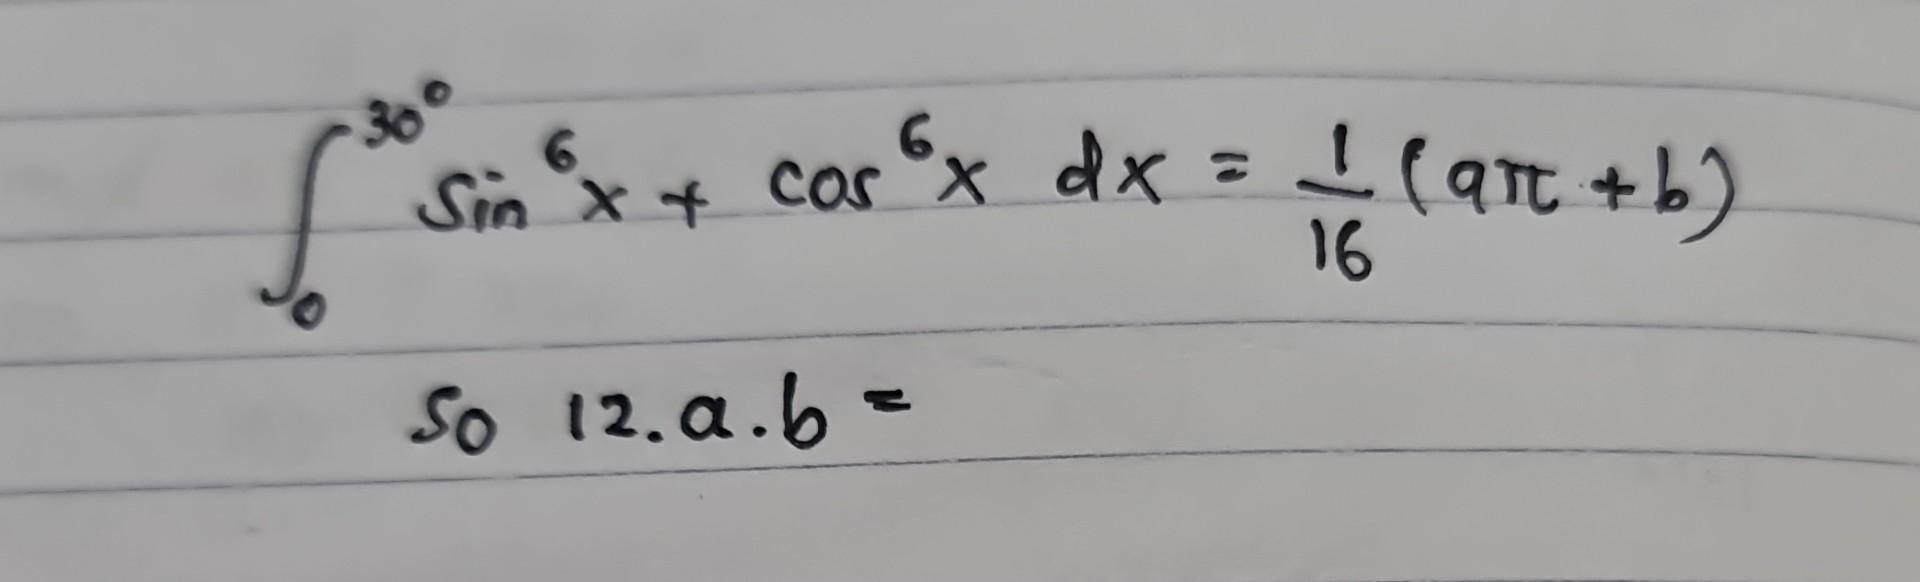 ∫₀^30° sin⁶x + cos⁶x dx = 1/16 (aπ + b)
So 12.a.b =